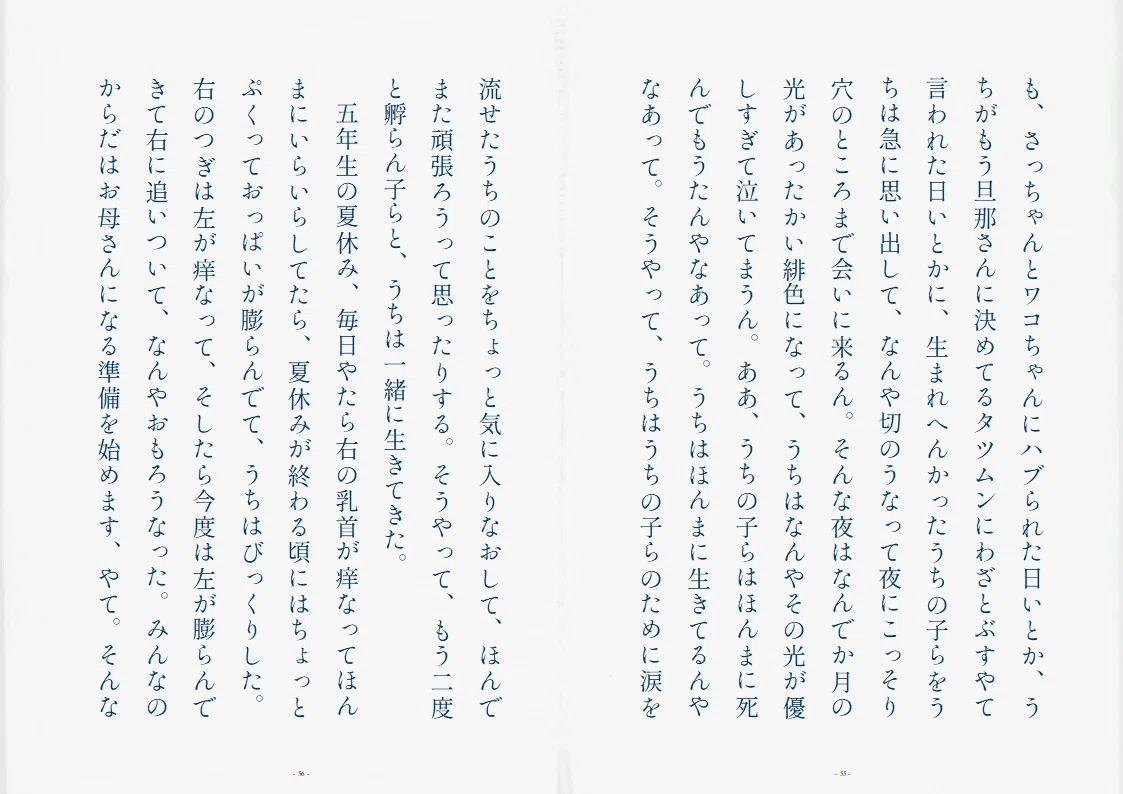 も、さっちゃんとワコちゃんにハブられた日いとか、う
ちがもう旦那さんに決めてるタツムンにわざとぶすやて
言われた日いとかに、生まれへんかったうちの子らをう
ちは急に思い出して、なんや切のうなって夜にこっそり
穴のところまで会いに来るん。そんな夜はなんでか月の
光があったかい緋色になって、うちはなんやその光が優
しすぎて泣いてまうん。ああ、うちの子らはほんまに死
んでもうたんやなあって。うちはほんまに生きてるんや
なあって。そうやって、うちはうちの子らのために涙を
- 55 -
流せたうちのことをちょっと気に入りなおして、ほんで
また頑張ろうって思ったりする。そうやって、もう二度
と孵らん子らと、うちは一緒に生きてきた。
五年生の夏休み、毎日やたら右の乳首が痒なってほん
まにいらいらしてたら、夏休みが終わる頃にはちょっと
ぷくっておっぱいが膨らんでて、うちはびっくりした。
右のつぎは左が痒なって、そしたら今度は左が膨らんで
きて右に追いついて、なんやおもろうなった。みんなの
からだはお母さんになる準備を始めます、やて。そんな
- 56 -